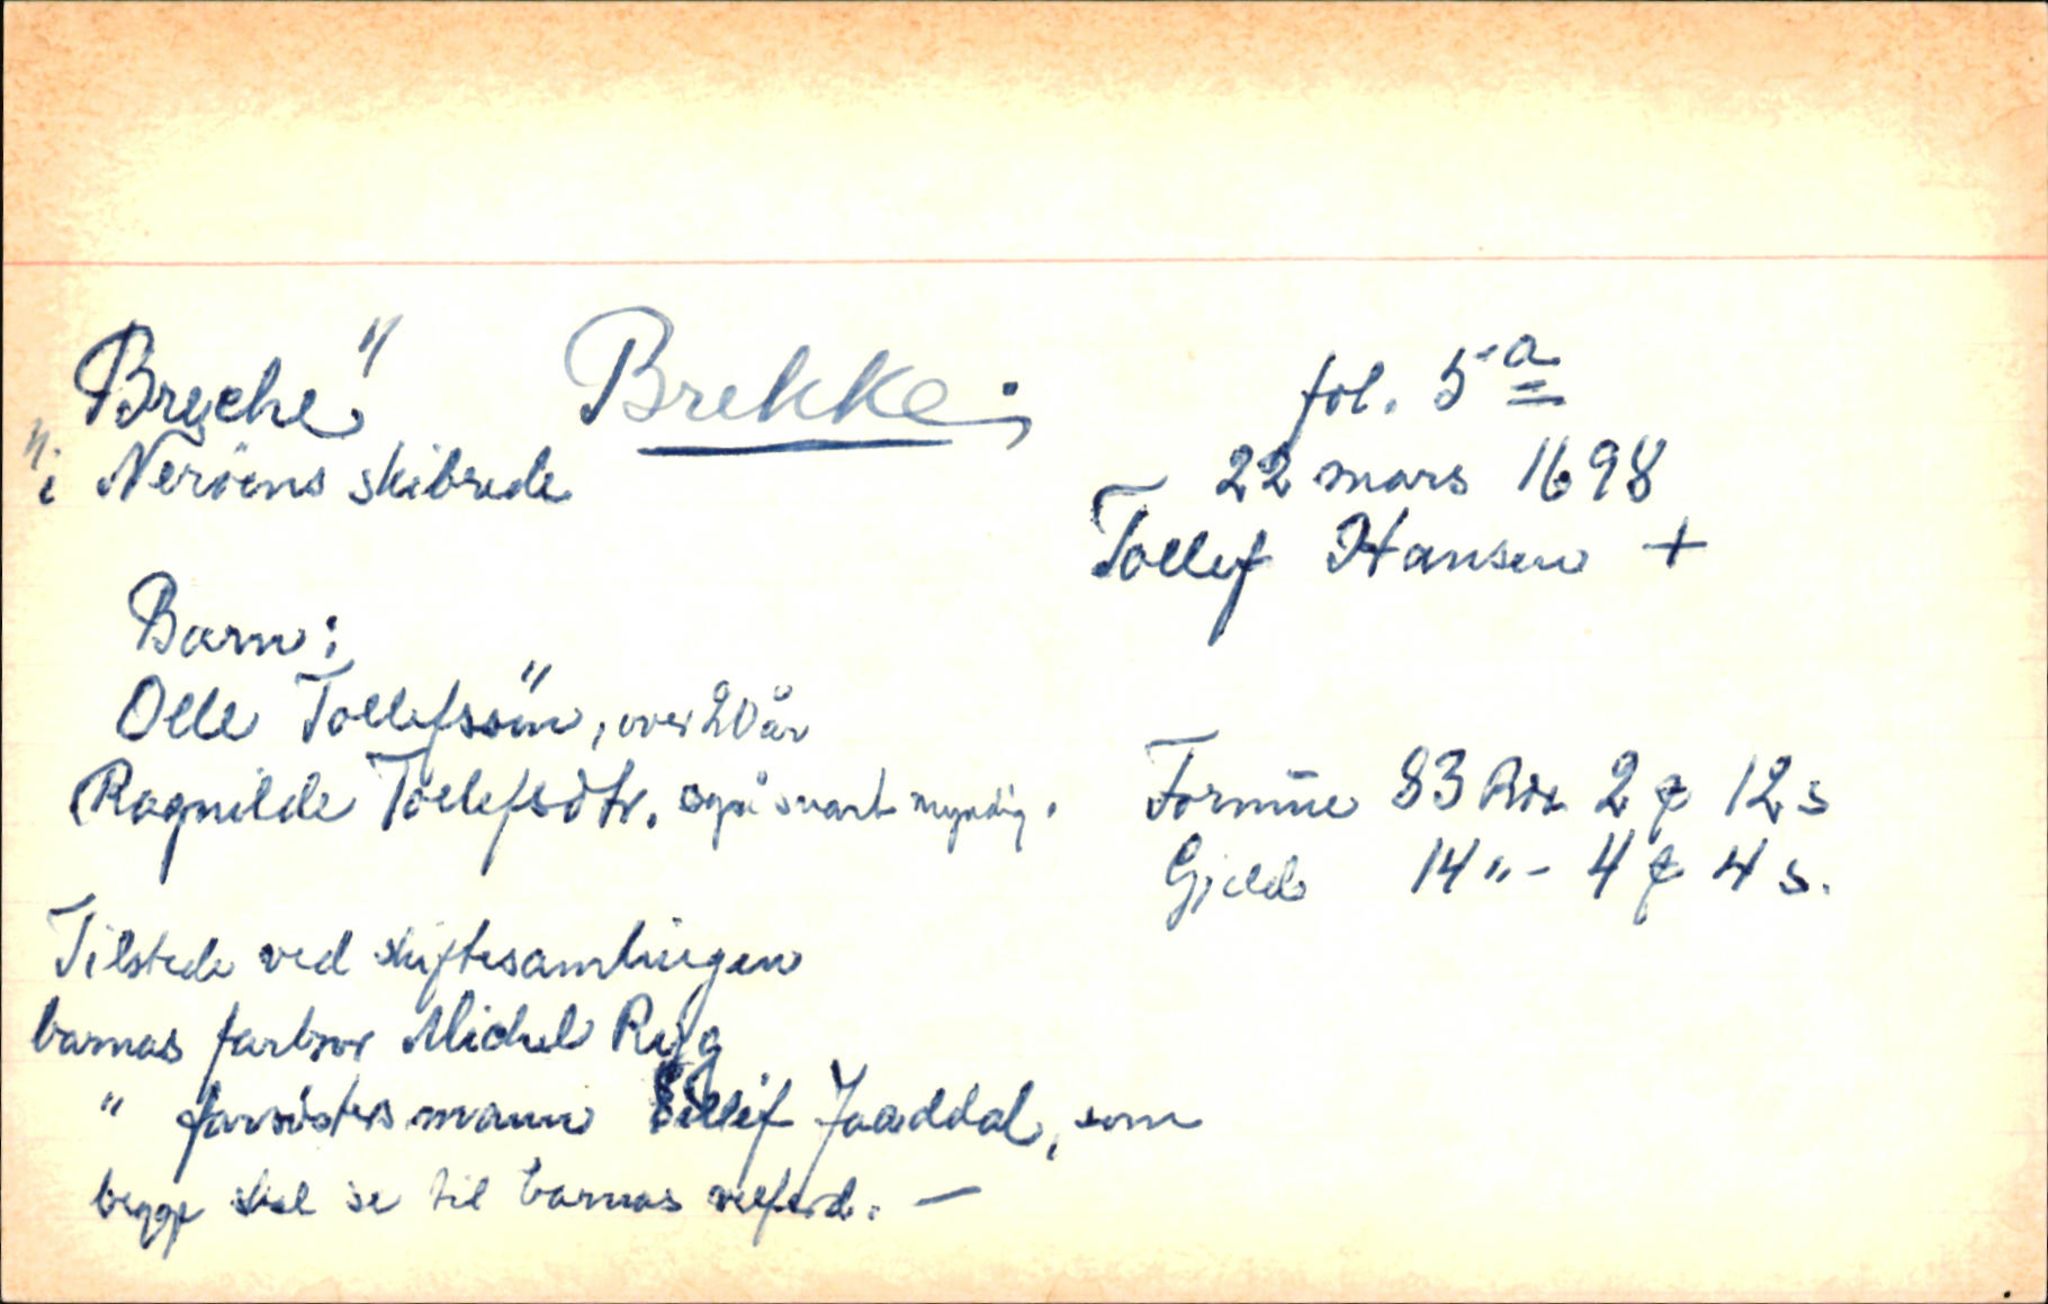 Breche" Brekke; fol. 5 a
"i Neröens skibrede 22 mars 1698
Tollef Hansen +
Barn:
Olle Tollefssön", over 20 år
Ragnilde Tollefsdtr. også snart myndig.
Formue 83 Rdr 2 ƶ 12 s
Gjeld 14 " - 4 ƶ 4 s.
Tilstede ved skiftesamlingen
barnas farbror Michel
" farsösters mann Ellef Jaaddal, som
begge skal se til barnas velferd. —